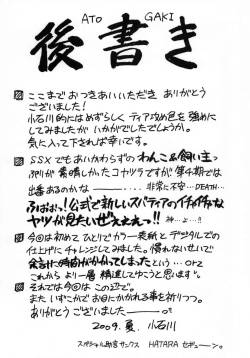 ATO GAKI
後書き
ここまでおつきあいいただき ありがとう
ございました!
小石川的にはめずらしく ティア攻め色を強めに
してみましたが いかがでしたでしょうか。
気に入って下されば幸いです。
SSXでもあいかわらずのわんこ&飼い主っ
ぷりが素晴しかったコナツラですが第4期では
出番あるのかな 非常に不安…DEATH…
公式で新しいスバティアのイチャイチャな
ヤツが見たいぜぇぇっ!!
今回は初めて ひとりでカラー表紙とデジタルでの
仕上げに チャレンジしてみました。慣れないせいで
余計に時間がかかってしまった という…orz
これから より一層 精進してゆこうと思います。
それでは今回は この辺で。
また いずこかでお目にかかれる事を祈りつつ。
ありがとう ございました
2009.夏. 小石川
スペシャル助言サンクス HATARA セヂューーン。